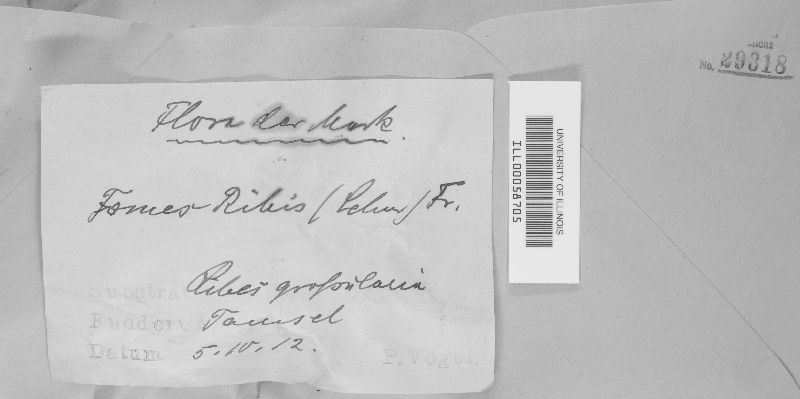 Flora der Mark.
Fomes Ribis (Schum) Fr.
Substrat Ribes großularia
Fundort Tamsel
Datum 5.IV.12.
P. Vogel.
UNIVERSITY OF ILLINOIS
ILL00058705
No. 29318